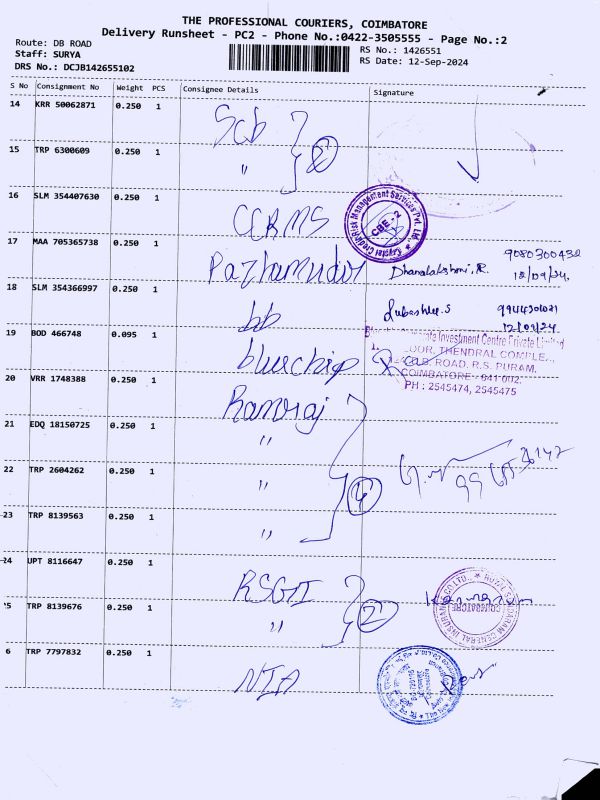 THE PROFESSIONAL COURIERS, COIMBATORE
Delivery Runsheet - PC2 - Phone No.:0422-3505555 - Page No.:2
Route: DB ROAD
RS No.: 1426551
Staff: SURYA
RS Date: 12-Sep-2024
DRS No.: DCJB142655102
S No Consignment No Weight PCS Consignee Details Signature
14 KRR 50062871 0.250 1 Scb
15 TRP 6300609 0.250 1 " 2
16 SLM 354407630 0.250 1 CCRMS
Credit Risk Management Services Pvt. Ltd.,
CBE - 2
17 MAA 705365738 0.250 1 Pazhamudir Dhanalakshmi.R. 9080300432
12/09/24.
18 SLM 354366997 0.250 1 bb
12/09/24
19 BOD 466748 0.095 1 bluechip
Investment Centre Private Limited
THENDRAL COMPLE
ROAD, R.S. PURAM,
COIMBATORE - 641 002.
PH : 2545474, 2545475
20 VRR 1748388 0.250 1 Ramraj
21 EDQ 18150725 0.250 1 "
22 TRP 2604262 0.250 1 " 4
23 TRP 8139563 0.250 1 "
24 UPT 8116647 0.250 1 RSGI
ROYAL SUNDARAM GENERAL INSURANCE CO. LTD.,
COIMBATORE
25 TRP 8139676 0.250 1 " 2
6 TRP 7797832 0.250 1 NIA